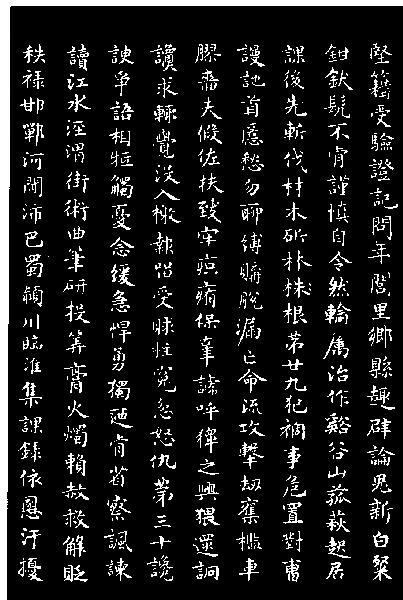 堅籍受驗證記問年閭里鄉縣趣辟論鬼新白粲
鉗釱髡不肯謹慎自令然輸屬治作谿谷山菰萩起居
課後先斬伐材木斫株根第廿九犯禍事危置對曹
謾訑首匿愁勿聊縛購脫漏亡命流攻擊劫奪檻車
膠嗇夫假佐扶致牢疻痏保辜謕呼之興猥逮詗
讂求輒覺沒入檄報留受賕枉冤忿怒仇第三十讒
諛爭語相牴觸憂念緩急悍勇獨迺肯省察諷諫
讀江水涇渭街術曲筆研投筭膏火燭賴赦救解貶
秩祿邯鄲河間沛巴蜀潁川臨淮集課錄依恩汙擾